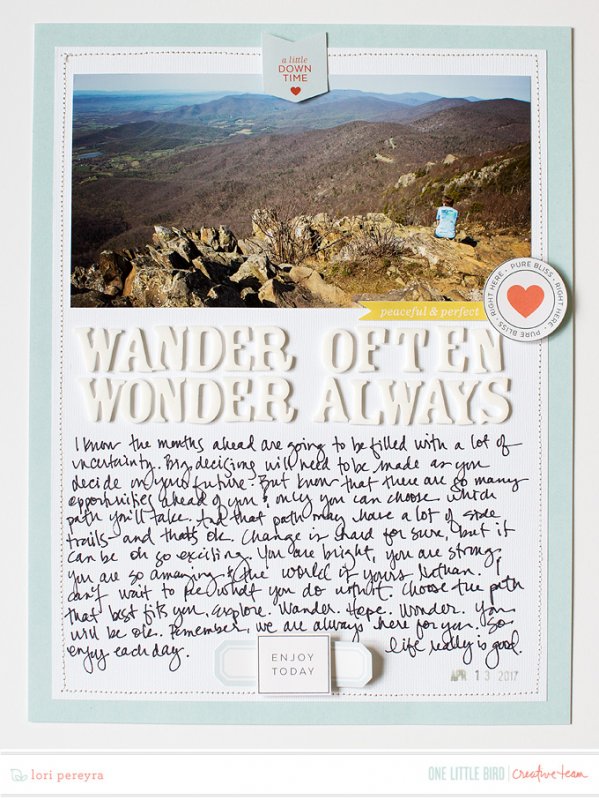 a little
DOWN
TIME
peaceful & perfect
RIGHT HERE • PURE BLISS • RIGHT HERE • PURE BLISS •
WANDER OFTEN
WONDER ALWAYS
I know the months ahead are going to be filled with a lot of
uncertainty. Big decisions will need to be made as you
decide on your future. But know that there are so many
opportunities ahead of you & only you can choose which
path you'll take. And that path may have a lot of side
trails and that's ok. Change is hard for sure, but it
can be oh so exciting. You are bright, you are strong,
you are so amazing & the world is yours Nathan. I
can't wait to see what you do with it. Choose the path
that best fits you. Explore. Wander. Hope. Wonder. You
will be ok. Remember, we are always here for you. So
enjoy each day. life really is good.
ENJOY
TODAY
APR 13 2017
lori pereyra
ONE LITTLE BIRD | creative team